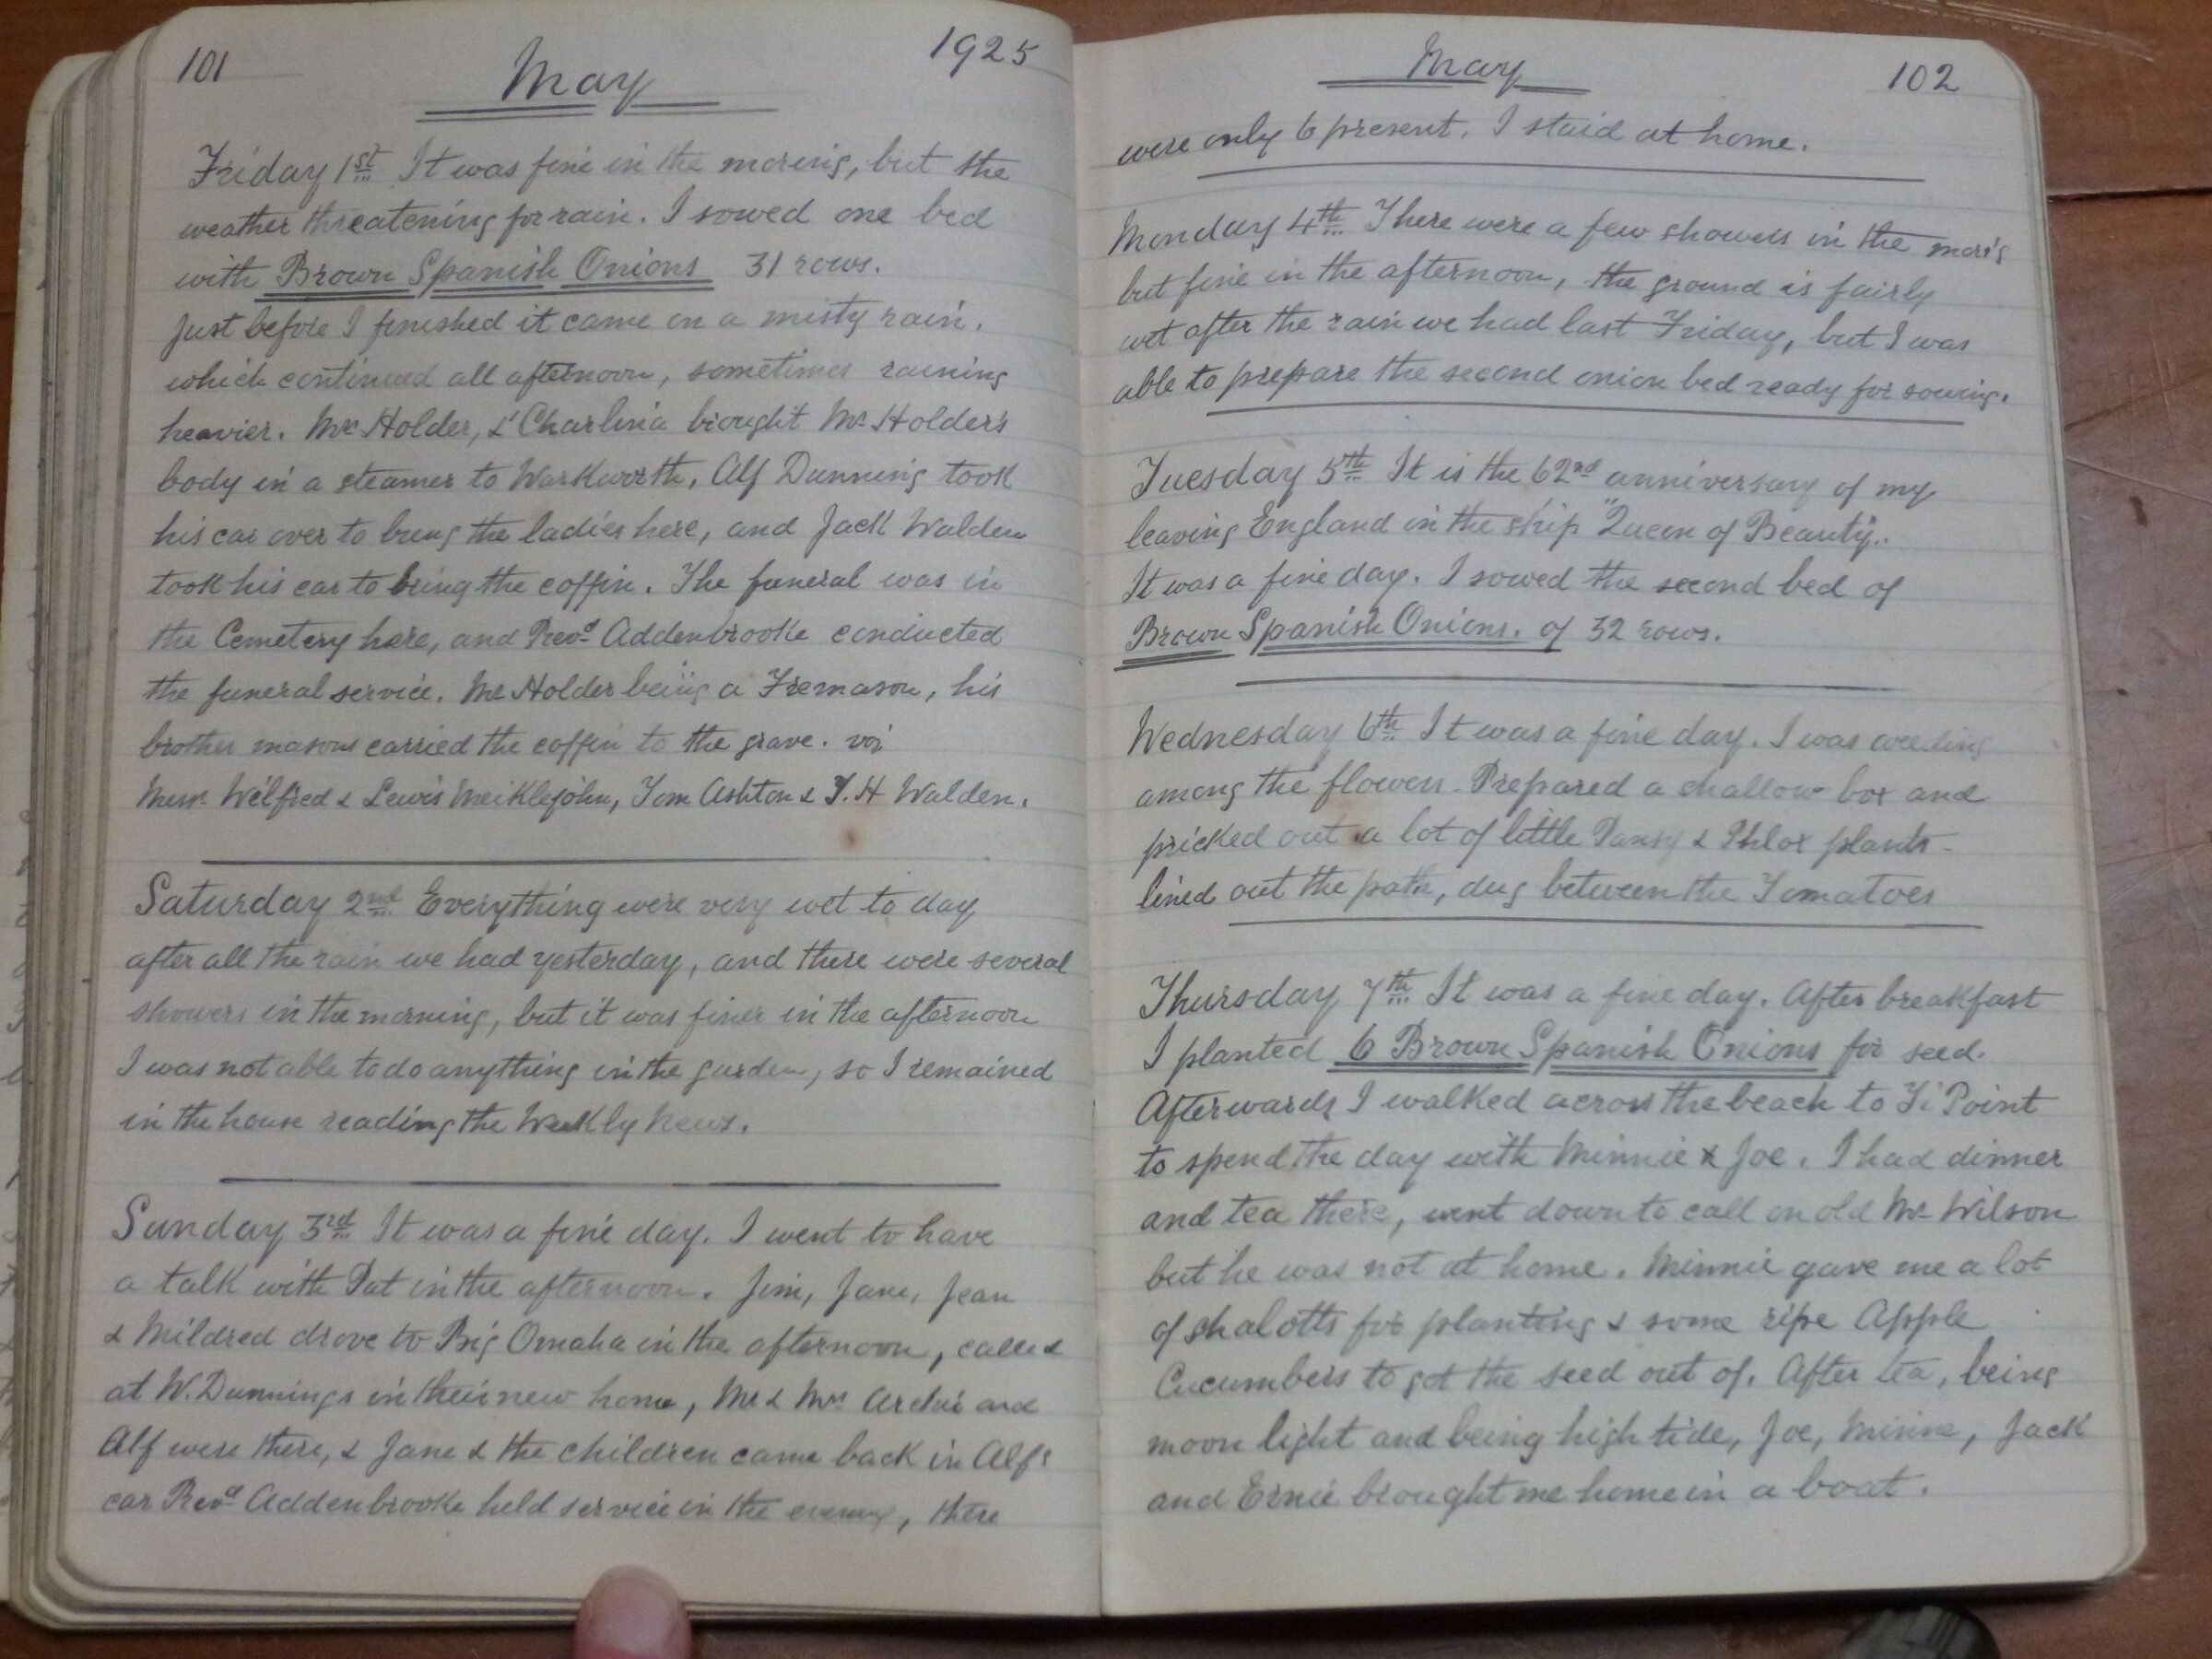 101
May
1925
Friday 1st It was fine in the morning, but the
weather threatening for rain. I sowed one bed
with Brown Spanish Onions 31 rows.
Just before I finished it came on a misty rain.
which continued all afternoon, sometimes raining
heavier. Mrs Holder, & Charlina brought Mr Holder's
body in a steamer to Warkworth, Alf Dunning took
his car over to bring the ladies here, and Jack Walden
took his car to bring the coffin. The funeral was in
the Cemetery here, and Revd Addenbrooke conducted
the funeral service. Mr Holder being a Fremason, his
brother masons carried the coffin to the grave.
Messrs Wilfred & Lewis Meiklejohn, Tom Ashton & T.H Walden.
Saturday 2nd Everything were very wet to day
after all the rain we had yesterday, and there were several
showers in the morning, but it was finer in the afternoon
I was not able to do anything in the garden, so I remained
in the house reading the Weekly News.
Sunday 3rd It was a fine day. I went to have
a talk with Pat in the afternoon. Jim, Jane, Jean
& Mildred drove to Big Omaha in the afternoon, called
at W. Dunnings in their new home, Mr & Mrs Archie and
Alf were there, & Jane & the children came back in Alf's
car Revd Addenbrooke held service in the evening, there
May
102
were only 6 present. I staid at home.
Monday 4th There were a few showers in the morn'g
but fine in the afternoon, the ground is fairly
wet after the rain we had last Friday, but I was
able to prepare the second onion bed ready for sowing.
Tuesday 5th It is the 62nd anniversary of my
leaving England in the ship "Queen of Beauty".
It was a fine day. I sowed the second bed of
Brown Spanish Onions. of 32 rows.
Wednesday 6th It was a fine day. I was weeding
among the flowers. Prepared a shallow box and
pricked out a lot of little Pansy & Phlox plants -
lined out the path, dug between the Tomatoes
Thursday 7th It was a fine day. After breakfast
I planted 6 Brown Spanish Onions for seed.
Afterwards I walked across the beach to Ti Point
to spend the day with Minnie & Joe. I had dinner
and tea there, went down to call on old Mr Wilson
but he was not at home. Minnie gave me a lot
of shalotts for planting & some ripe Apple
Cucumbers to get the seed out of. After tea, being
moon light and being high tide, Joe, Minnie, Jack
and Ernie brought me home in a boat.